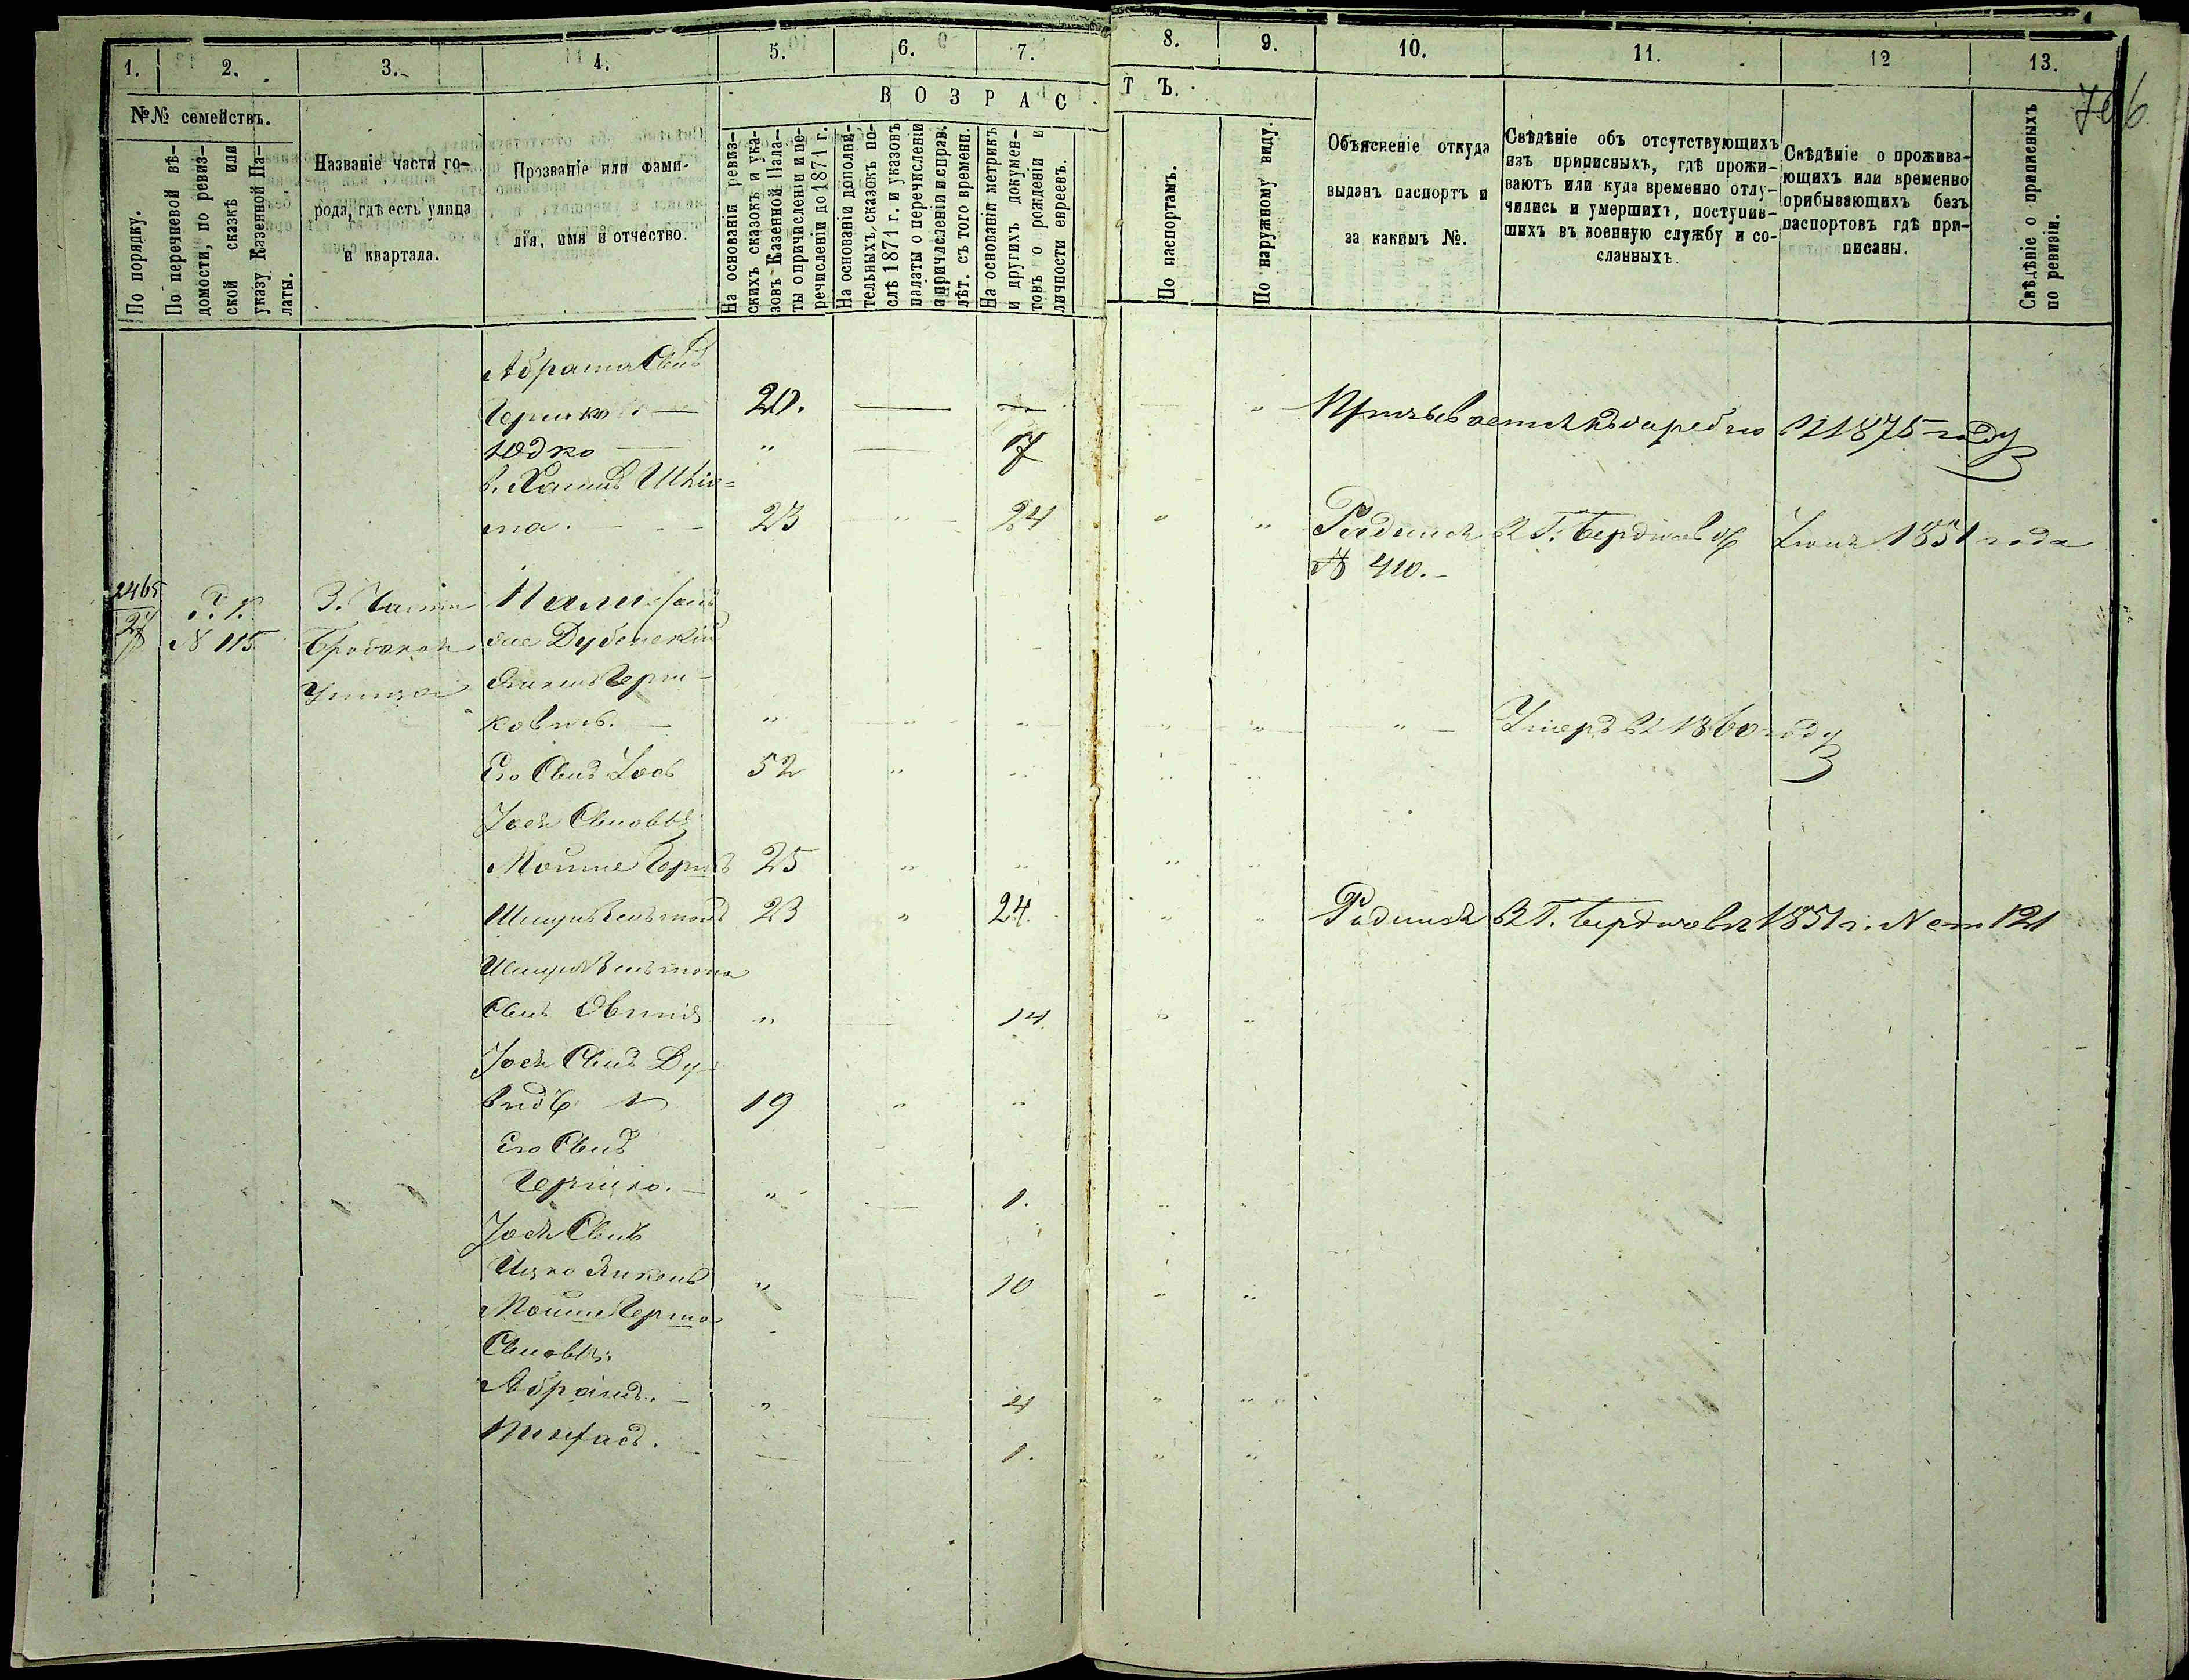 1. 2. 3. 4. 5. 6. 7. 8. 9. 10. 11. 12 13.
№№ семействъ.
В О З Р А С Т Ъ.
По порядку.
По перечневой вѣ-
домости, по ревиз-
ской сказкѣ или
указу Казенной Па-
латы.
Названіе части го-
рода, гдѣ есть улица
и квартала.
Прозваніе или фами-
лія, имя и отчество.
На основаніи ревиз-
скихъ сказокъ и ука-
зовъ Казенной Пала-
ты о причисленіи и пе-
речисленіи до 1871 г.
На основаніи дополни-
тельныхъ сказокъ по-
слѣ 1871 г. и указовъ
палаты о перечисленіи
и причисленіи и справ.
лѣт. съ того времени.
На основаніи метрикъ
и другихъ докумен-
товъ о рожденіи и
личности евреевъ.
По паспортамъ.
По наружному виду.
Объясненіе откуда
выданъ паспортъ и
за какимъ №.
Свѣдѣніе объ отсутствующихъ
изъ приписныхъ, гдѣ прожи-
ваютъ или куда временно отлу-
чились и умершихъ, поступив-
шихъ въ военную службу и со-
сланныхъ.
Свѣдѣніе о прожива-
ющихъ или временно
прибывающихъ безъ
паспортовъ гдѣ при-
писаны.
Свѣдѣніе о приписныхъ
по ревизіи.
Абрама Сынъ
Гершко — 20. — — Призывается къ жребію въ 1875 году
Юдко — " — 17
Хаимъ
23 " 24 " " Родился въ Г. Бердичевѣ 1851 года
№ 410.-
2465
27
№ 115
3. Части
Улица
Дубенскій
Герш-
ковичъ. — " " " " " " Умеръ въ 1860 году
Его Сынъ 52 " "
Іося Сыновья
Мойше Гершъ 25 " " " "
23 " 24. " " Родился въ Г. Бердичевѣ 1851 г. 121
Сынъ " 14. "
Іося Сынъ Ду-
видъ 19 " "
Его Сынъ
Гершко. — " 1.
Іося Сынъ
Ицко " 10 " "
Мойше Герша
Сыновья:
Абрамъ. — " 4 " "
Пинхасъ. 1. " "